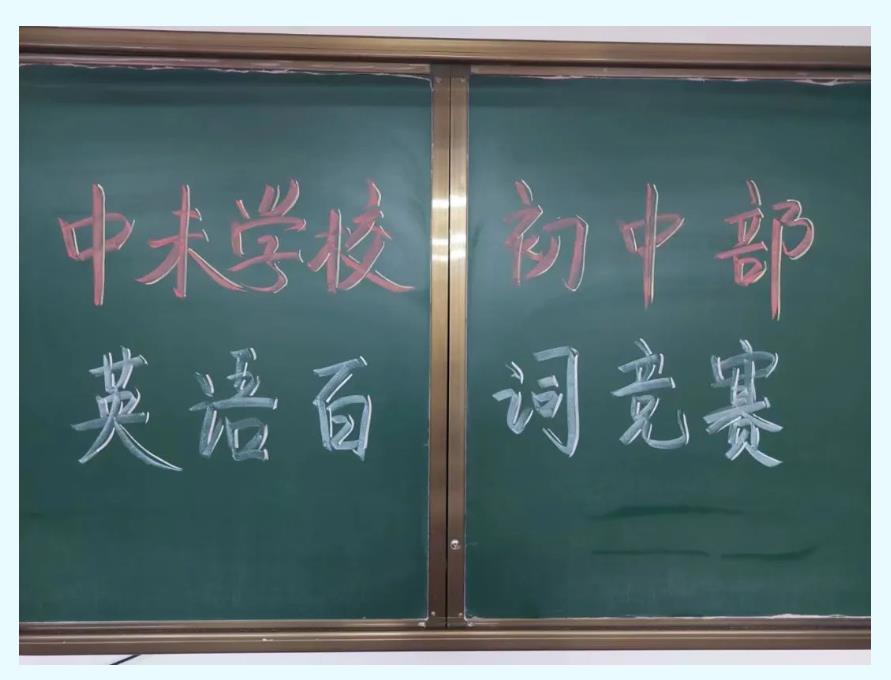 中未学校初中部
英语百词竞赛